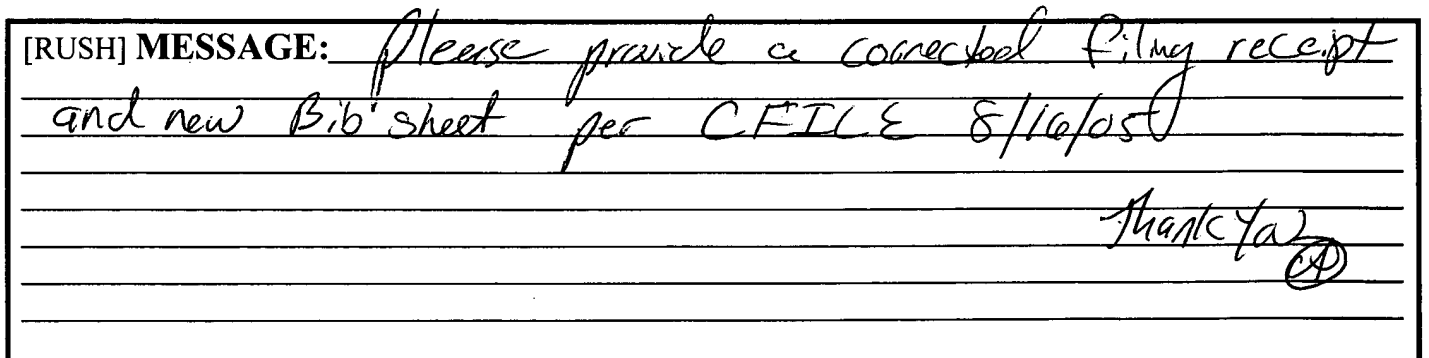 [RUSH] MESSAGE: Please provide a corrected filing receipt
and new Bib sheet per CFILE 8/16/05
Thank You